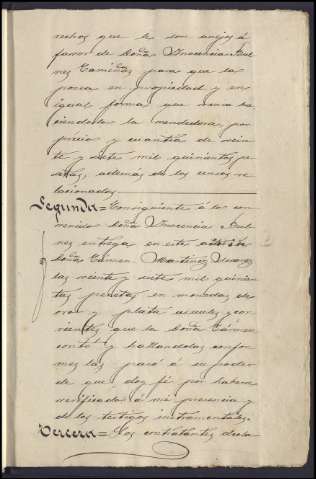 rechos que le son anejos á
favor de Doña Inocencia Bul
nes Caminas para que la
posea en propiedad y en
igual forma que viene ha
ciendolo la vendedora por
precio y cuantía de vein
te y siete mil quinientas pe
setas, además de los censos re
lacionados.
Segunda = Consiguiente á lo con
venido Doña Inocencia Bul
nes entrega en este acto á
Doña Cármen Martinez
las veinte y siete mil quinien
tas pesetas en monedas de
oro y plata usuales y cor
rientes que la Doña Cármen
contó y hallandolas confor
mes las pasó á su poder
de que doy fé por haberse
verificado á mi presencia y
de los testigos instrumentales.
Tercera = Los contratantes decla